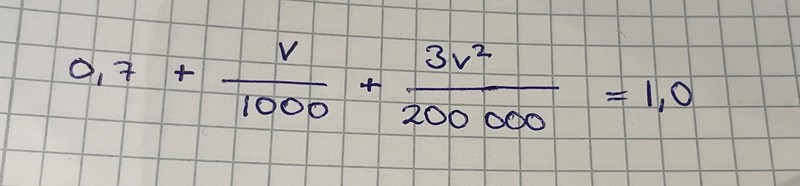 0,7 + v/1000 + 3v²/200 000 = 1,0